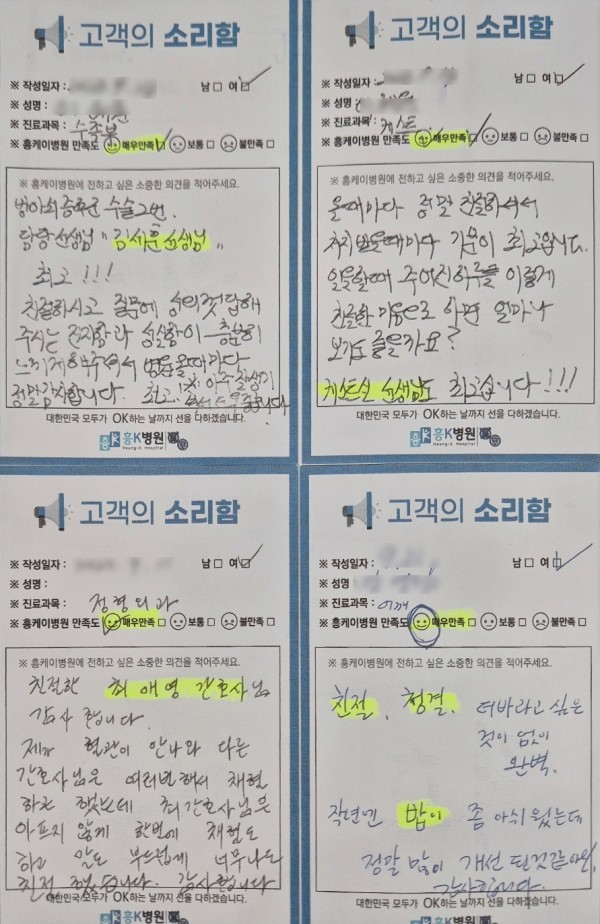 고객의 소리함
※ 작성일자 : 남 □ 여 □
※ 성명 :
※ 진료과목 : 수족부
※ 흥케이병원 만족도 매우만족 □ 보통 □ 불만족 □
※ 흥케이병원에 전하고 싶은 소중한 의견을 적어주세요.
수술 2번.
담당선생님 "김세훈 선생님"
최고!!!
친절하시고 질문에 성의껏 답해
주시는 진지함과 성실함이 충분히
느끼게 해주셔서 병원올때마다
정말감사합니다. 최고!
대한민국 모두가 OK하는 날까지 선을 다하겠습니다.
흥K병원
Heung-K Hospital
고객의 소리함
※ 작성일자 : 남 □ 여 □
※ 성명 :
※ 진료과목 : 캐스트
※ 흥케이병원 만족도 매우만족 □ 보통 □ 불만족 □
※ 흥케이병원에 전하고 싶은 소중한 의견을 적어주세요.
올때마다 정말 친절하셔서
치치 받을때마다 기분이 최고입니다.
일을할때 주어진하루를 이렇게
친절한 마음으로 하면 얼마나
보기도 좋을까요?
캐스트실 선생님도 최고십니다!!!
대한민국 모두가 OK하는 날까지 선을 다하겠습니다.
흥K병원
Heung-K Hospital
고객의 소리함
※ 작성일자 : 남 □ 여 □
※ 성명 :
※ 진료과목 : 정형외과
※ 흥케이병원 만족도 매우만족 □ 보통 □ 불만족 □
※ 흥케이병원에 전하고 싶은 소중한 의견을 적어주세요.
친절한 최애영 간호사님
감사 합니다.
제가 혈관이 안나와 다른
간호사님은 여러번 해서 채혈
하고 했는데 최간호사님은
아프지 않게 한번에 채혈도
하고 말도 부드럽게 너무나도
친절 했습니다. 감사합니다
대한민국 모두가 OK하는 날까지 선을 다하겠습니다.
흥K병원
고객의 소리함
※ 작성일자 : 남 □ 여 □
※ 성명
※ 진료과목 : 어깨
※ 흥케이병원 만족도 매우만족 □ 보통 □ 불만족 □
※ 흥케이병원에 전하고 싶은 소중한 의견을 적어주세요.
친절, 청결. 더바라고 싶은
것이 없이
완벽.
작년엔 밥이 좀 아쉬웠는데
정말 많이 개선 된것같아요.
감사합니다.
대한민국 모두가 OK하는 날까지 선을 다하겠습니다.
흥K병원